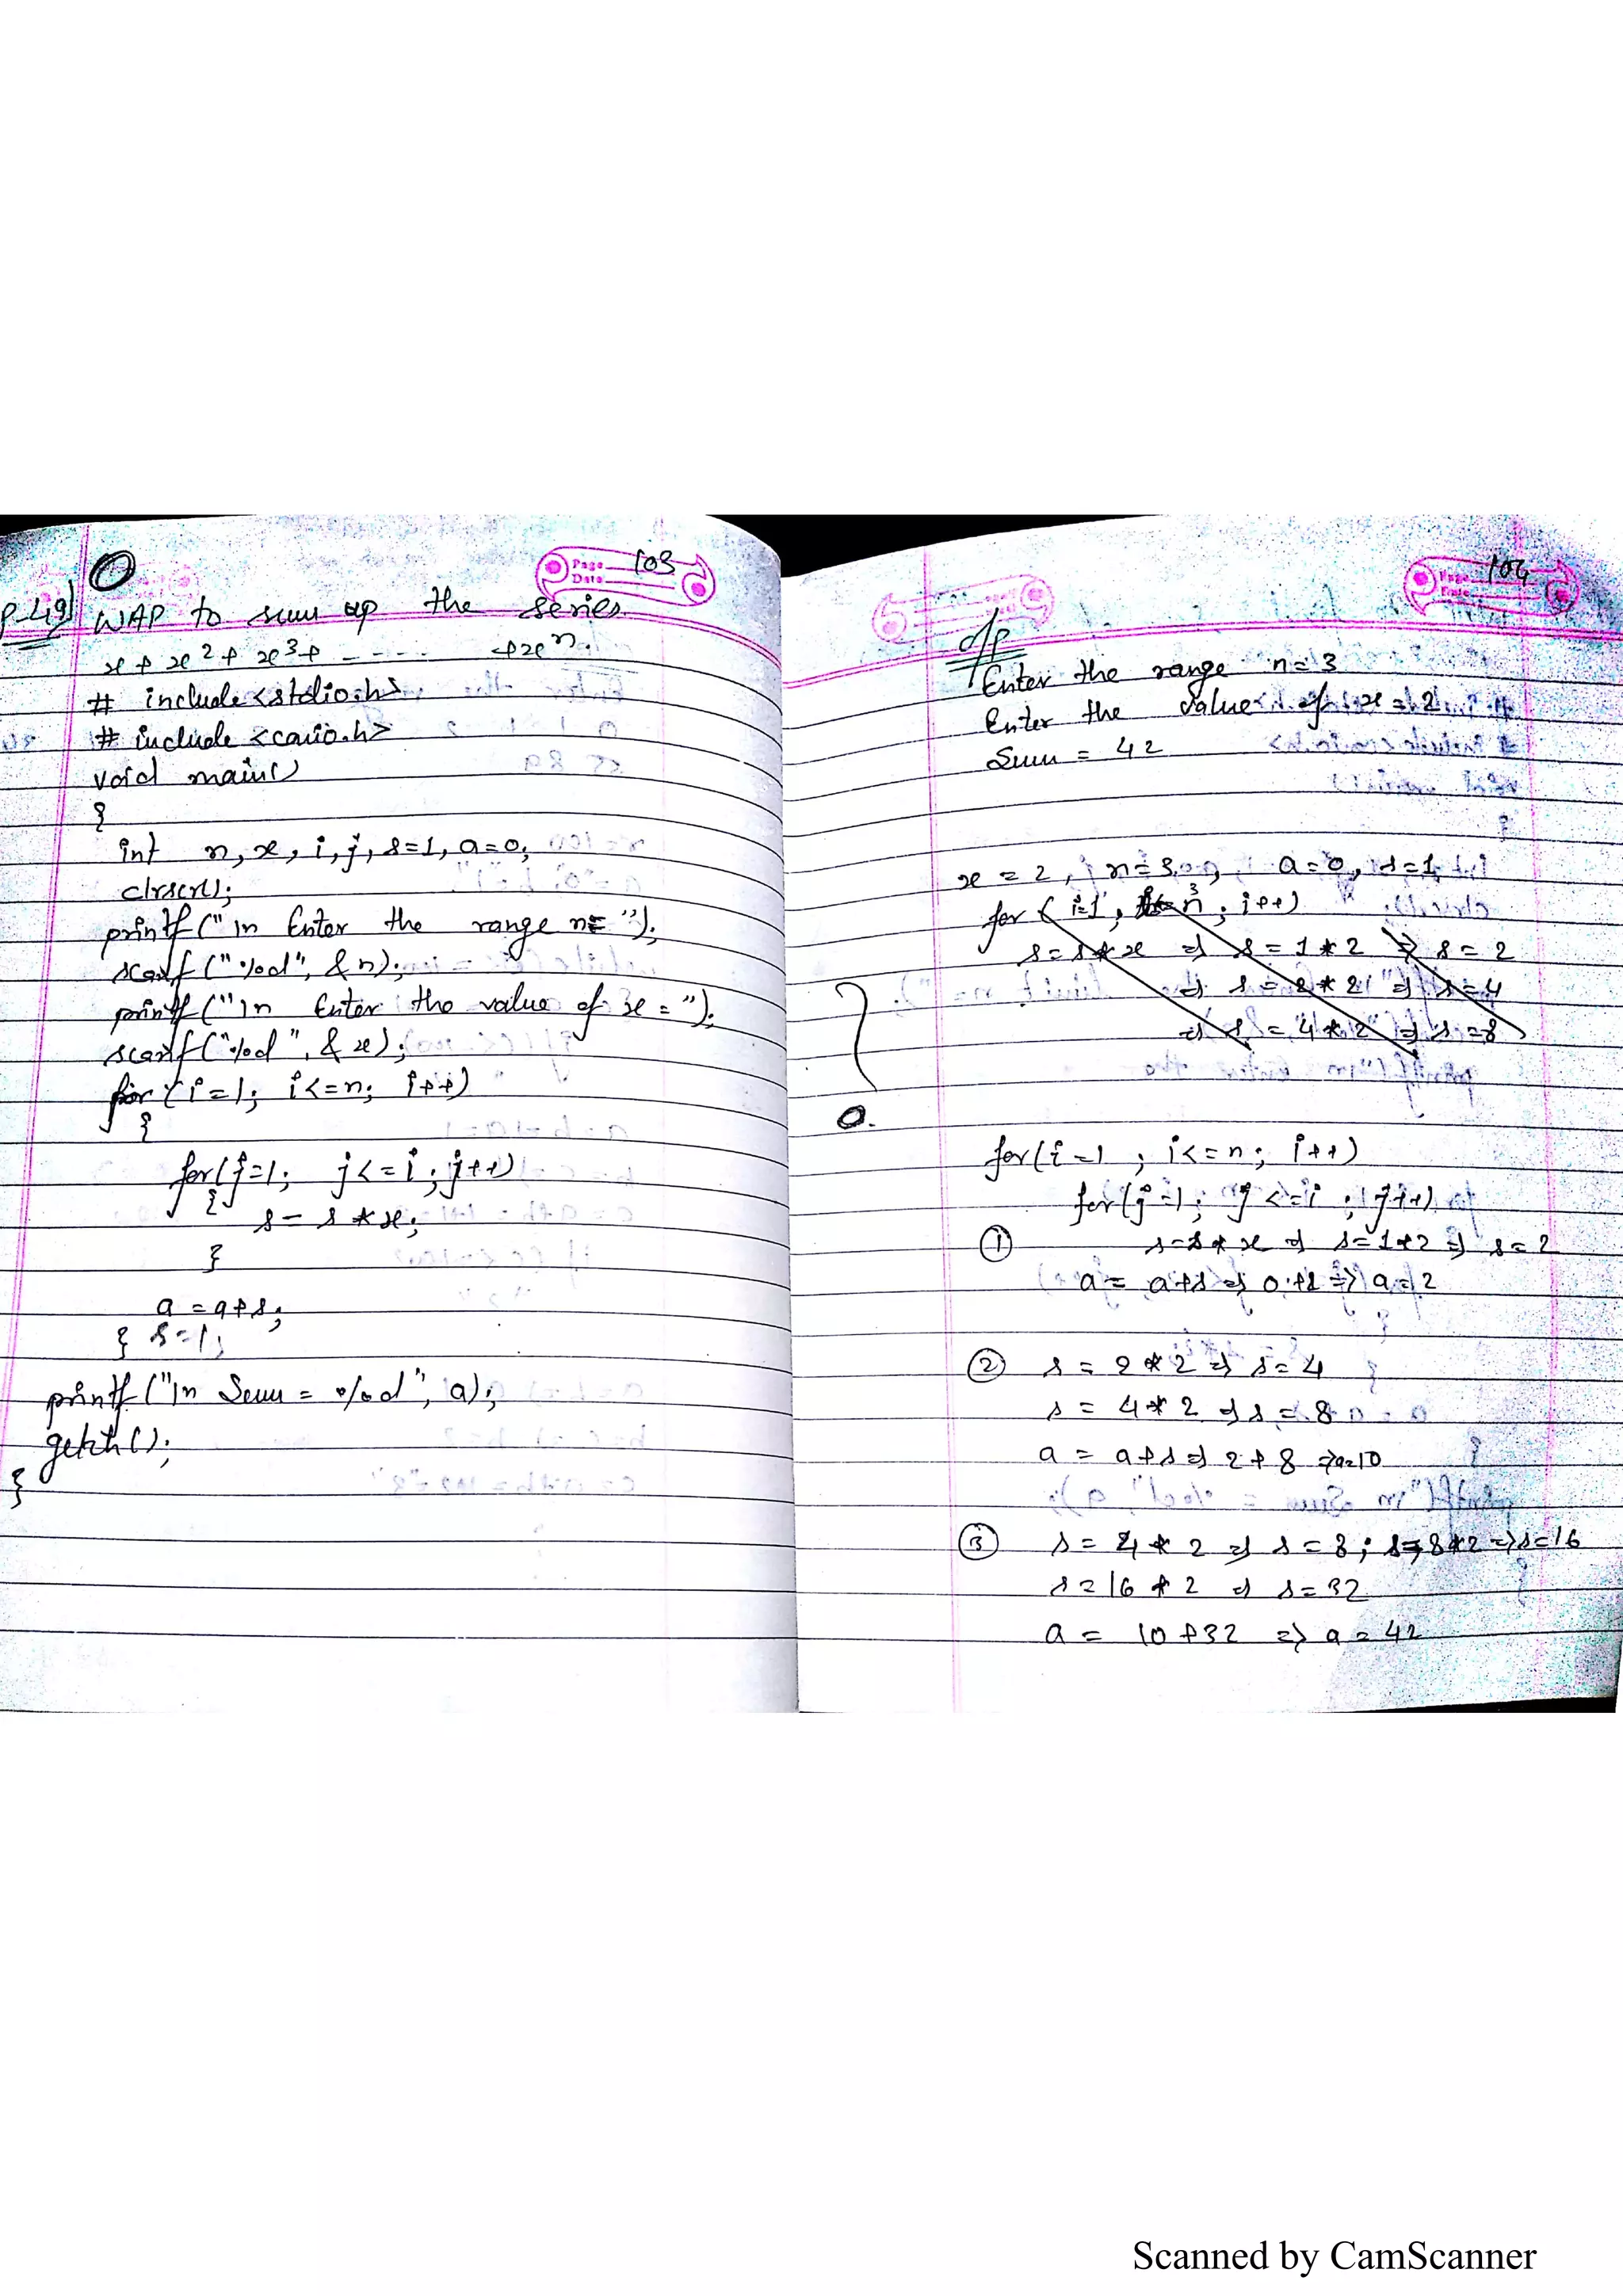 Page 103
Date
P-49) WAP to sum up the series
x + x2 + x3 + - - - - - +xn.
# include <stdio.h>
# include <conio.h>
void main()
{
int n, x, i, j, s=1, a=0;
clrscr();
printf("\n Enter the range n= ");
scanf ("%d", &n);
printf ("\n Enter the value of x = ");
scanf ("%d", &x);
for (i=1; i<=n; i++)
{
for(j=1; j<=i; j++)
{
s= s*x;
}
a=a+s;
} s=1;
printf ("\n Sum = %d", a);
getch();
}
Page 104
Date
o/p
Enter the range n=3
Enter the value of x = 2
Sum = 42
x = 2, n=3, a=0, s=1,
for ( i=1, n ; i++)
s=s*x => s = 1*2 => s = 2
=> s = 2*2 => s=4
=> s = 4*2 => s=8
0.
for(i=1 ; i<=n; i++)
for(j=1; j<=i ; j++)
① s=s*x => s=1*2 => s=2
a= a+s => 0+2 => a=2
② s = 2*2 => s=4
s = 4*2 => s=8
a = a+s => 2+8 => a=10
③ s = 4*2 => s=8; s=8*2 => s=16
s=16*2 => s=32
a = 10+32 => a=42
Scanned by CamScanner